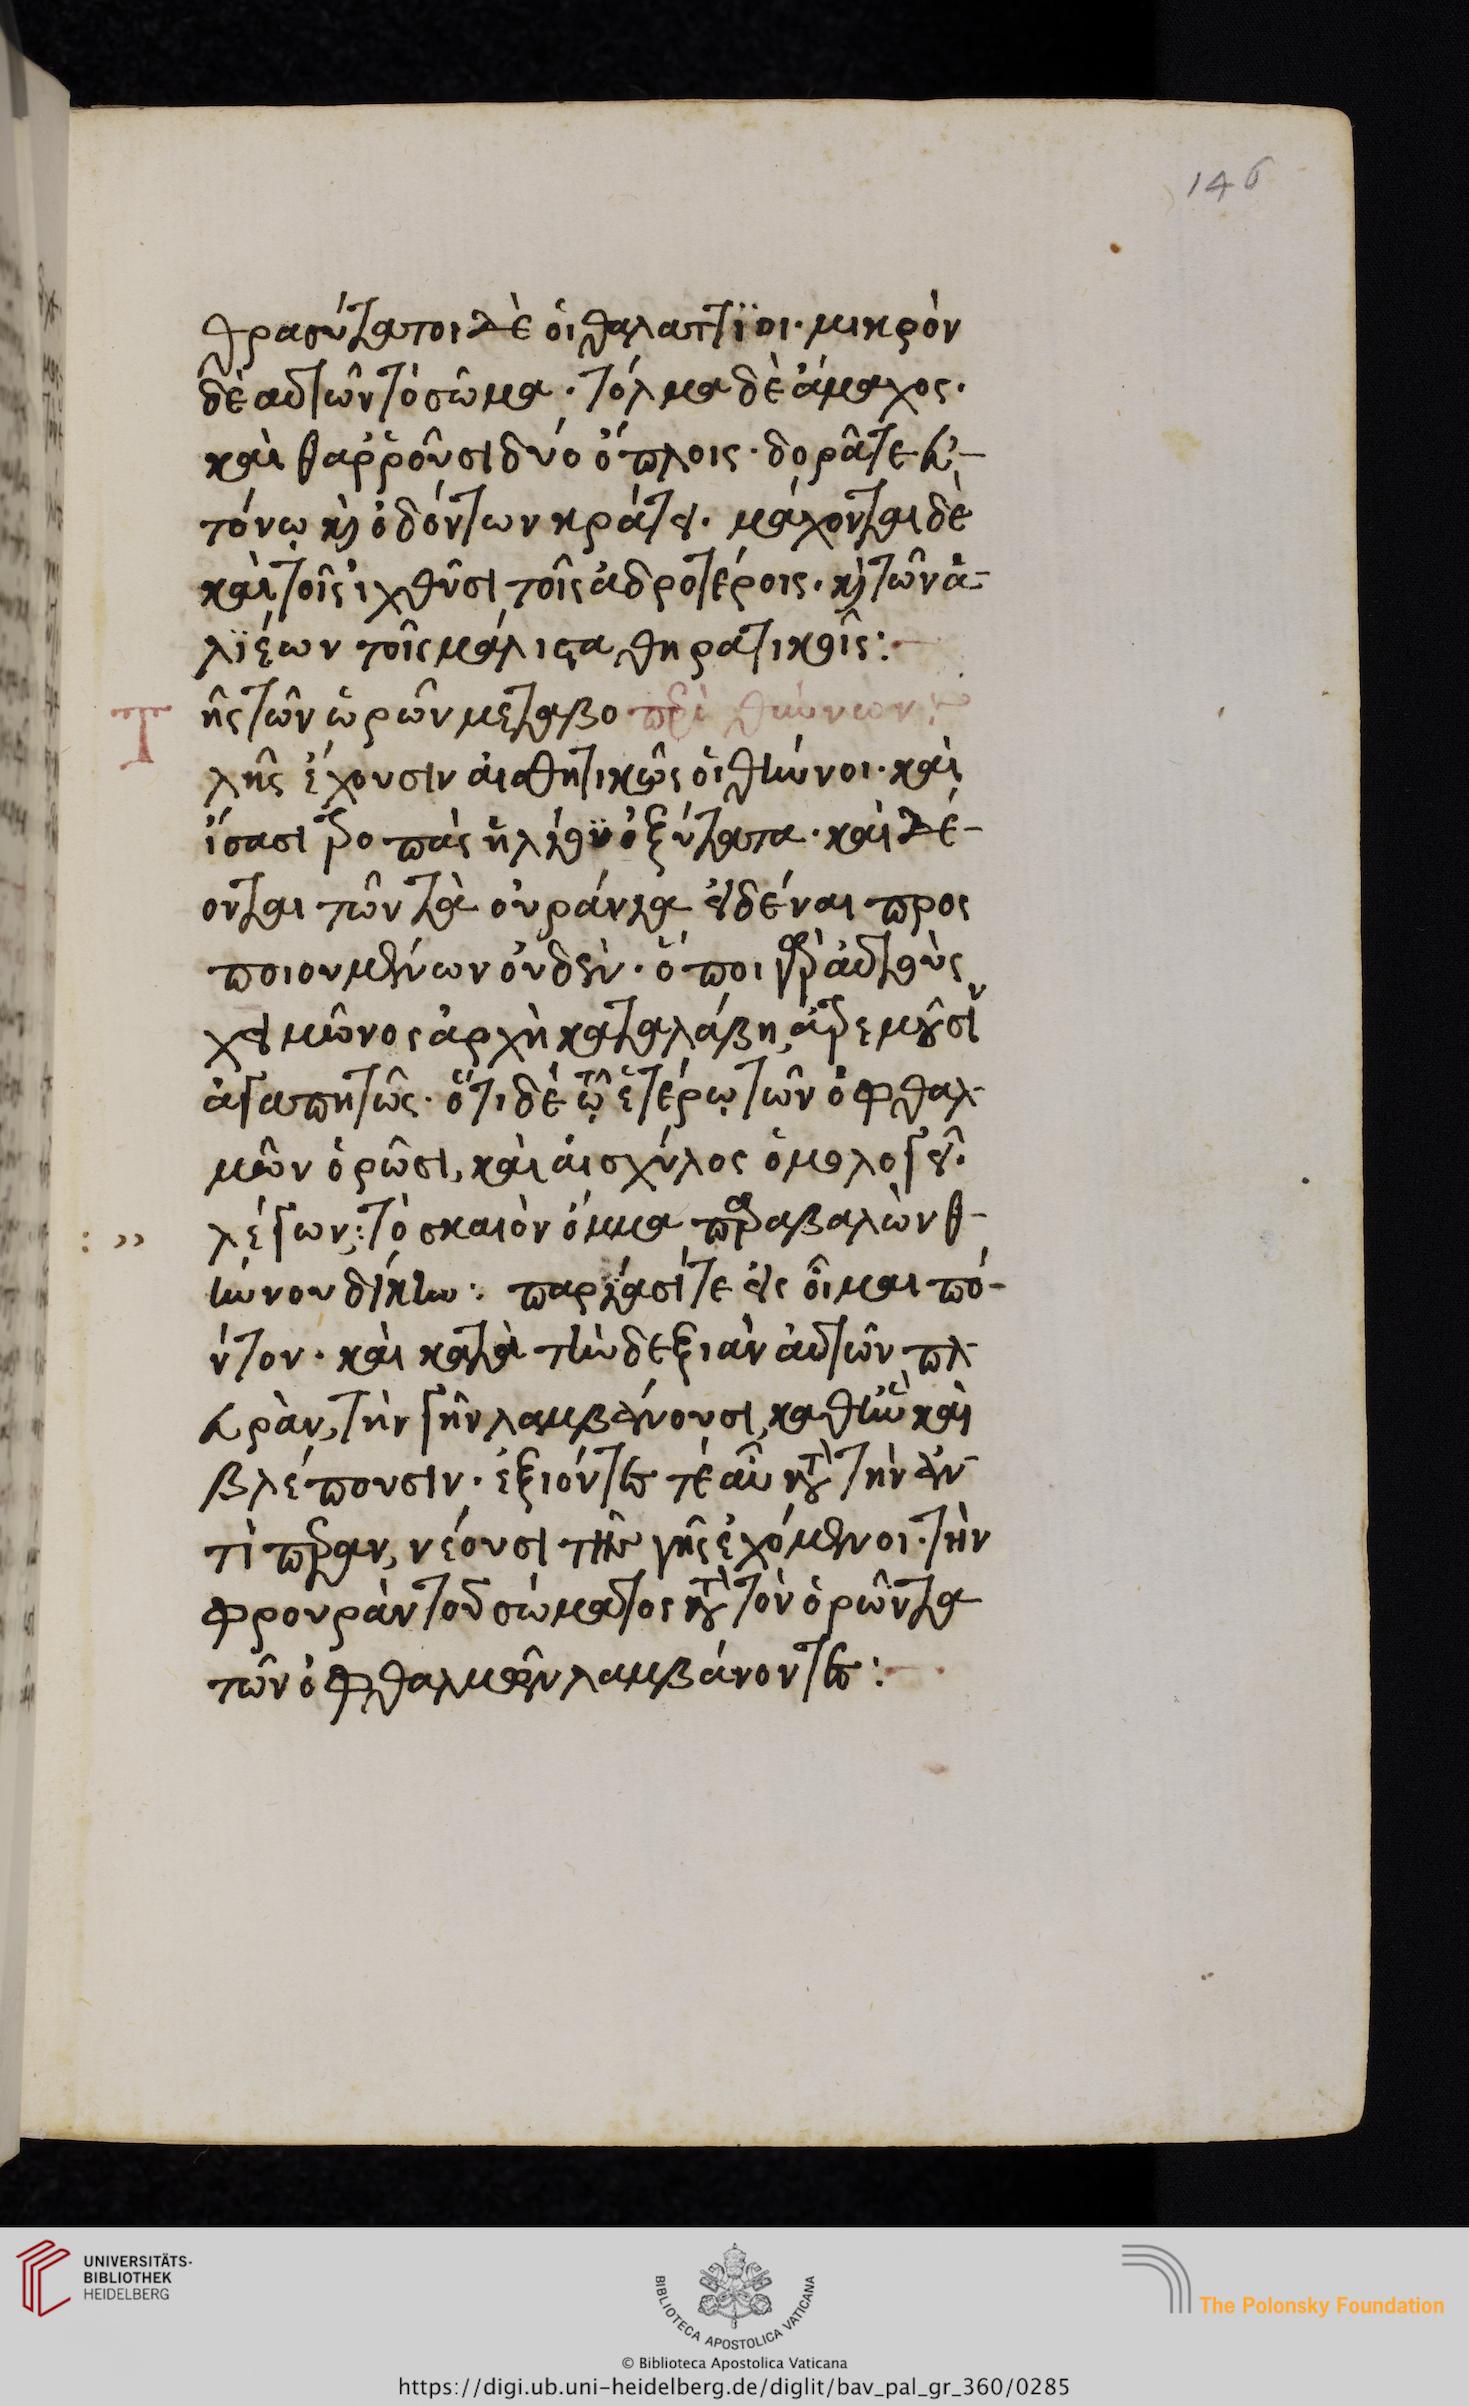 146
θρασύτατοι δὲ ὁι θαλαττϊοι· μικρὸν
δὲ αυτῶν τὸ σῶμα· τόλμα δὲ ἄμαχος·
καὶ θαῤῥοῦσι δύο ὅπλοις· δορᾶ τε ἐυ-
τόνω κ) ὀδόντων κράτει. μάχονται δὲ
καὶ τοῖς ἰχθῦσι τοῖς ἁδροτέροις· κ) τῶν ἁ-
λϊέων τοῖς μάλιστα θηρατικοῖς:
Τῆς τῶν ὡρῶν μεταβο περὶ θύννων
λῆς ἔχουσιν αἰσθητικῶς ὁι θύννοι· καὶ
ἴσασι τροπὰς ἡλίου ὀξύτατα· καὶ δέ-
ονται τῶν τὰ οὐράνια εἰδέναι προσ
ποιουμένων οὐδέν· ὅποι γὰρ ἀυτοὺς
χειμῶνος ἀρχὴ καταλάβη, ἀτρεμοῦσιν
ἀγαπητῶς· ὅτι δὲ τῶ ἑτέρω τῶν ὀφθαλ
μῶν ὁρῶσι, καὶ ἀισχύλος ὁμολογεῖ.
λέγων: τὸ σκαιὸν ὄμμα παραβαλὼν θ-
ύννου δίκην: παρίασί τε εἰς οἶμαι πό-
ντον· καὶ κατὰ τὴν δεξιὰν ἀυτῶν πλ
ευρὰν, τὴν γῆν λαμβάνουσι, καθ' ἣν καὶ
βλέπουσιν· ἐξιόντες τέ αὖ κατὰ τὴν ἀν
τίπεραν, νέουσι τῆς γῆς ἐχόμενοι· τὴν
φρουρὰν τοῦ σώματος κατὰ τὸν ὁρῶντα
τῶν ὀφθαλμῶν λαμβάνοντες:
UNIVERSITÄTS-
BIBLIOTHEK
HEIDELBERG
BIBLIOTECA APOSTOLICA VATICANA
The Polonsky Foundation
© Biblioteca Apostolica Vaticana
https://digi.ub.uni-heidelberg.de/diglit/bav_pal_gr_360/0285